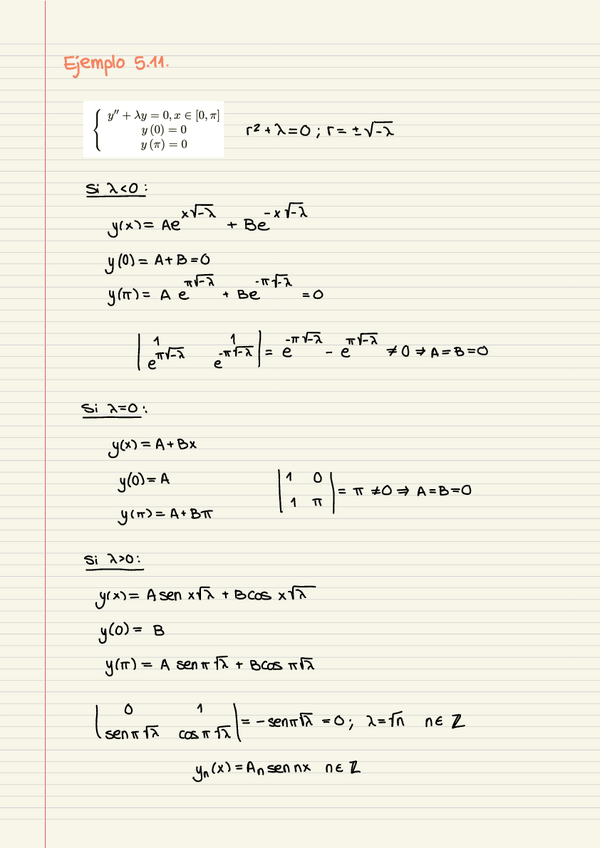 Ejemplo 5.11.
{ y'' + λy = 0, x ∈ [0, π]
y (0) = 0
y (π) = 0
r² + λ = 0 ; r = ±√-λ
Si λ<0:
y(x) = Ae^{x√-λ} + Be^{-x√-λ}
y(0) = A+B=0
y(π) = A e^{π√-λ} + Be^{-π√-λ} = 0
| 1 1 |
| e^{π√-λ} e^{-π√-λ} | = e^{-π√-λ} - e^{π√-λ} ≠ 0 ⇒ A=B=0
Si λ=0:
y(x) = A+Bx
y(0) = A
y(π) = A+Bπ
| 1 0 |
| 1 π | = π ≠ 0 ⇒ A=B=0
Si λ>0:
y(x) = A sen x√λ + B cos x√λ
y(0) = B
y(π) = A sen π√λ + B cos π√λ
| 0 1 |
| sen π√λ cos π√λ | = - sen π√λ = 0; λ=√n n∈ℤ
yₙ(x) = Aₙ sen nx n∈ℤ